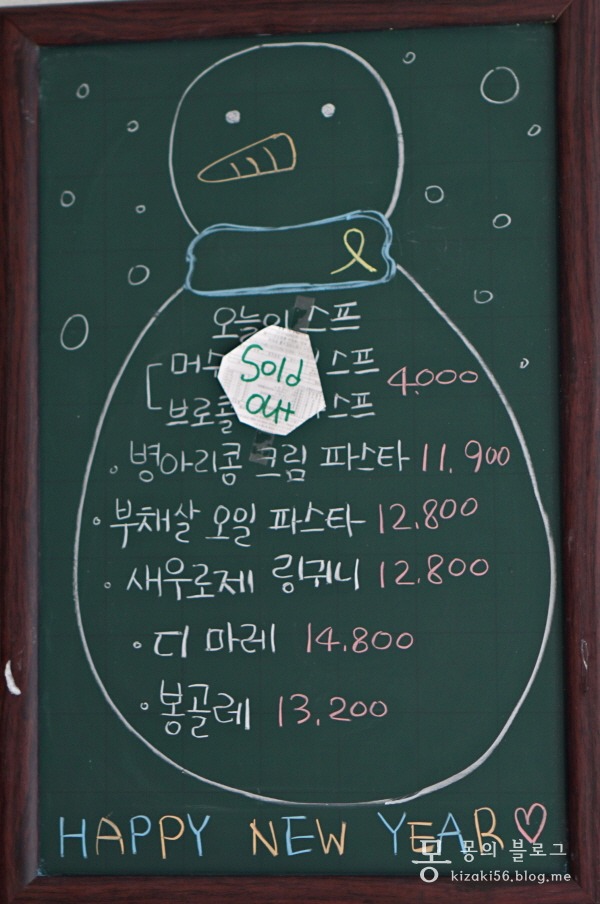 오늘의 스프
Sold
out
스프
4.000
스프
병아리콩 크림 파스타 11.900
부채살 오일 파스타 12.800
새우로제 링귀니 12.800
디 마레 14.800
봉골레 13.200
HAPPY NEW YEAR♡
몽 몽의 블로그
kizaki56.blog.me